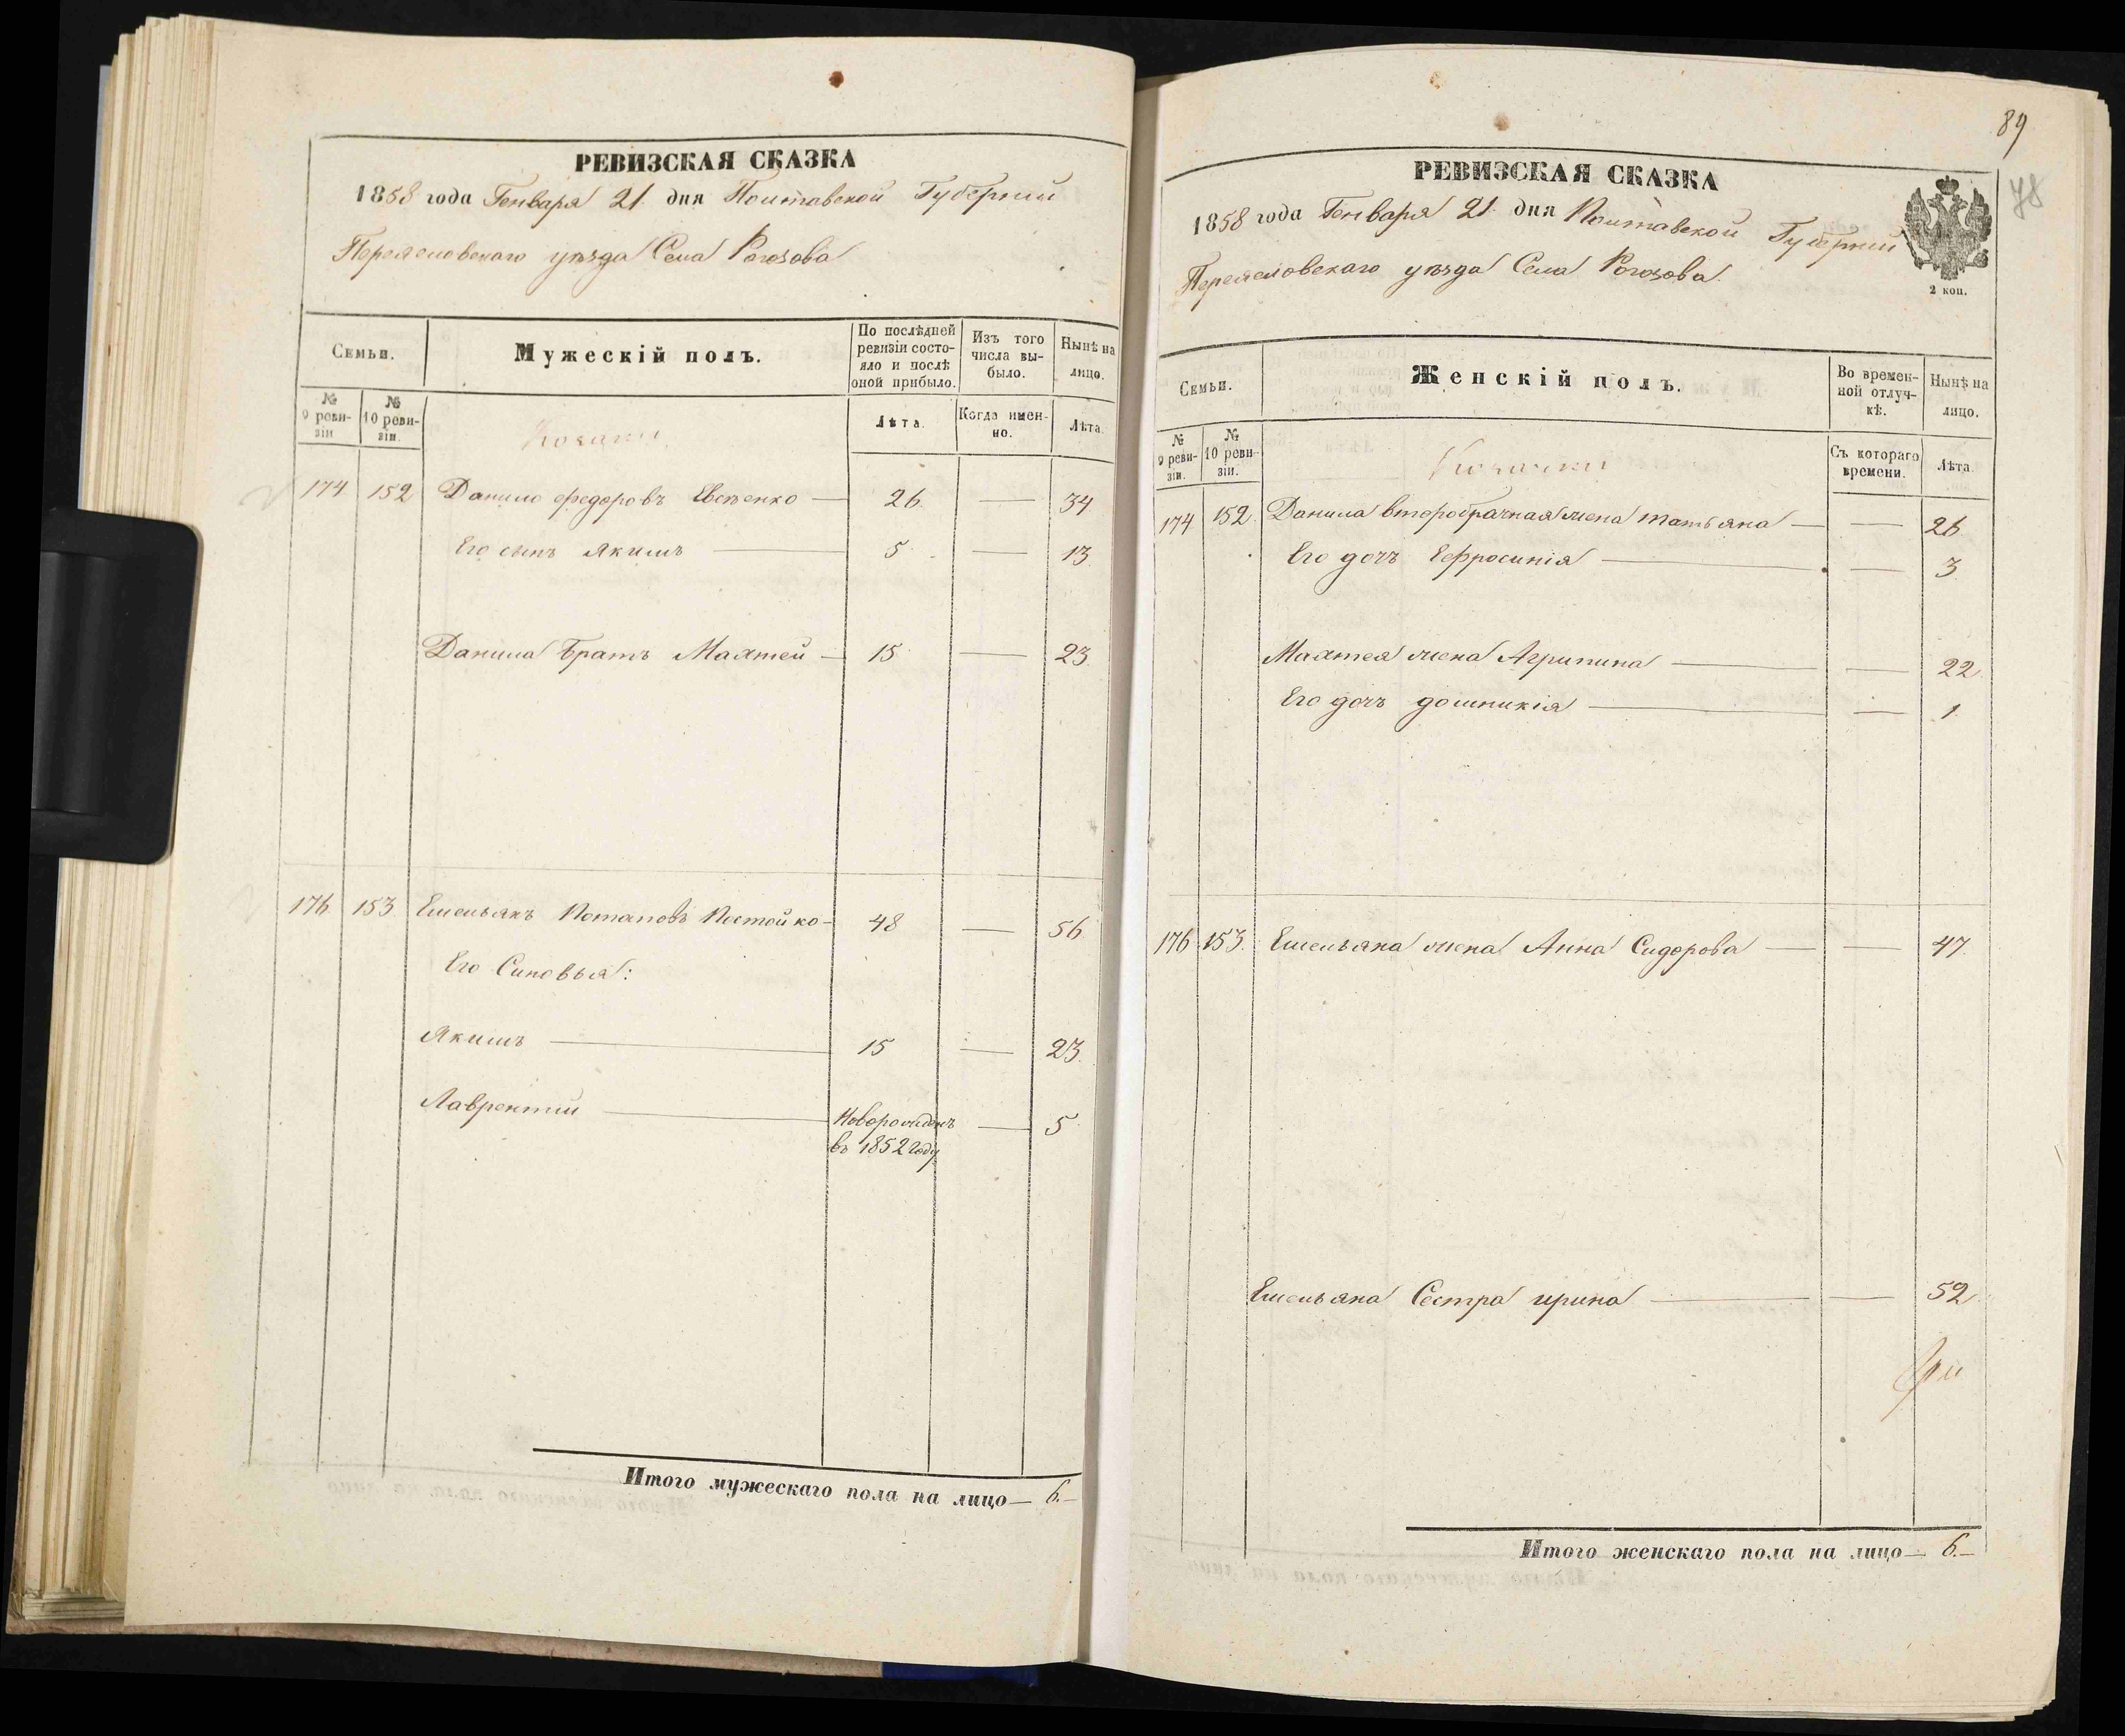 РЕВИЗСКАЯ СКАЗКА
1858 года Генваря 21 дня Полтавской Губернии
Переяславскаго уѣзда Села Рогозова
Семьи.
Мужескій полъ.
По послѣдней ревизіи состояло и послѣ оной прибыло.
Изъ того числа выбыло.
Нынѣ на лицо.
№ 9 ревизіи
№ 10 ревизіи.
Козаки
Лѣта.
Когда именно.
Лѣта.
174 152 Данило Федоровъ Евсѣенко — 26 — 34
Его сынъ Якимъ — 5 — 13
Данила Братъ Матѳей — 15 — 23
176 153 Емельянъ Потаповъ Костойко — 48 — 56
Его Синовья:
Якимъ — 15 — 23
Лаврентий — Новорожденъ — 5
въ 1852 Году
Итого мужескаго пола на лицо — 6. —
89
78
РЕВИЗСКАЯ СКАЗКА
1858 года Генваря 21 дня Полтавской Губернии
Переяславскаго уѣзда Села Рогозова
2 коп.
Семьи.
Женскій полъ.
Во временной отлучкѣ.
Нынѣ на лицо.
№ 9 ревизіи.
№ 10 ревизіи.
Козачки
Съ котораго времени.
Лѣта.
174 152 Данила второбрачная жена Татьяна — — 26
Его дочъ Ефросинія — — 3
Матѳея жена Агрипина — — 22
Его дочъ Домникія — — 1
176 153 Емельяна жена Анна Сидорова — — 47
Емельяна Сестра Ирина — — 52
Итого женскаго пола на лицо — 6. —